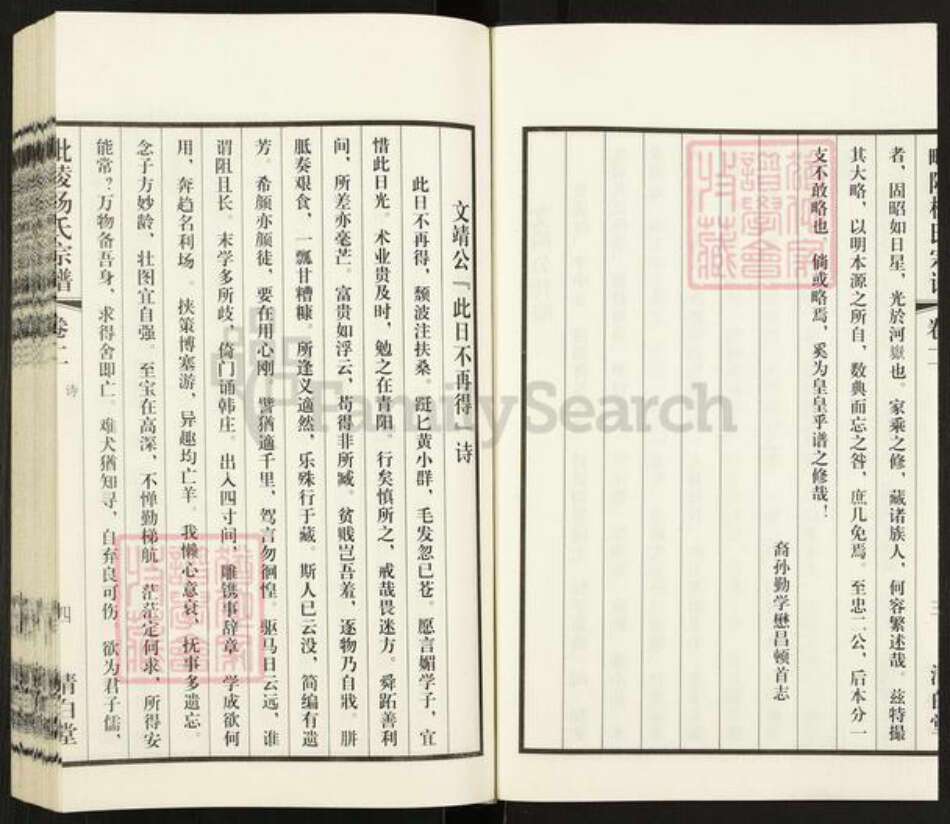 者，固昭如日星，光於河嶽也。家乘之修，藏诸族人，何容繁述哉。兹特撮
其大略，以明本源之所自，数典而忘之咎，庶几免焉。至忠二公，后本分一
支不敢略也，倘或略焉，奚为皇皇乎谱之修哉！
裔孙勤学懋昌顿首志
文靖公「此日不再得」诗
此日不再得，颓波注扶桑。跹匕黄小群，毛发忽已苍。愿言媚学子，宜
惜此日光。术业贵及时，勉之在青阳。行矣慎所之，戒哉畏迷方。舜跖善利
间，所差亦毫芒。富贵如浮云，苟得非所臧。贫贱岂吾羞，逐物乃自戕。胼
胝奏艰食，一瓢甘糟糠。所逢义適然，乐殊行于藏。斯人已云没，简编有遗
芳。希颜亦颜徒，要在用心刚。譬犹適千里，驾言勿徊惶。驱马日云远，谁
谓阻且长。末学多所歧，倚门诵韩庄。出入四寸间，雕镌事辞章。学成欲何
用，奔趋名利场。挟策博塞游，异趣均亡羊。我懒心意衰，抚事多遗忘。
念子方妙龄，壮图宜自强。至宝在高深，不惮勤梯航。茫茫定何求，所得安
能常？万物备吾身，求得舍即亡。难犬犹知寻，自弃良可伤。欲为君子儒，
毗陵杨氏宗谱
卷二
诗
四
清白堂
FamilySearch